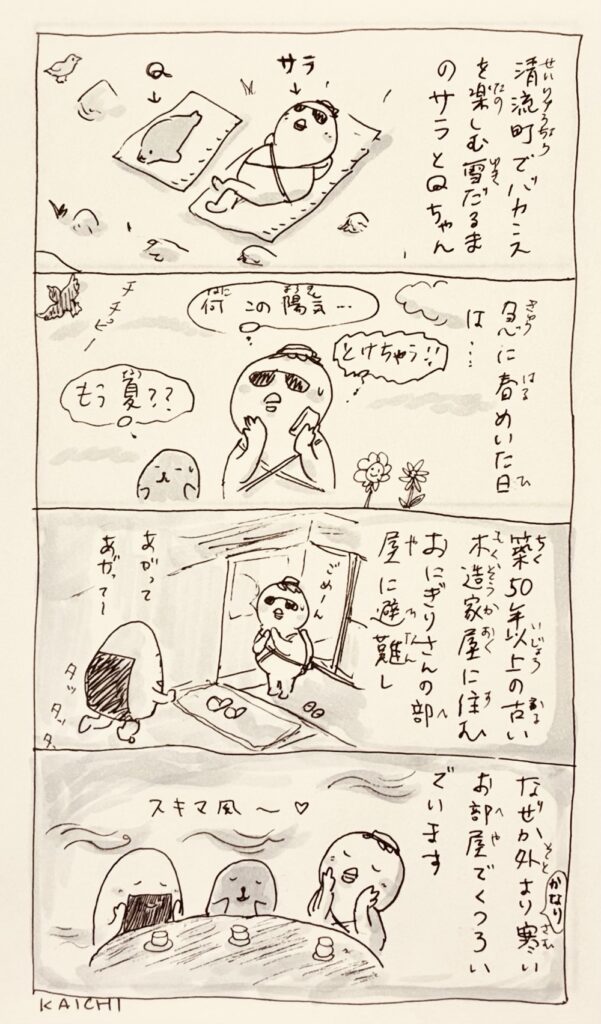 清流町でバカンス
を楽しむ雪だるま
のサラとQちゃん
サラ
Q
急に春めいた日
は…
とけちゃう!!
何この陽気…
もう夏??
チチピー
築50年以上の古い
木造家屋に住む
おにぎりさんの部
屋に避難し
ごめーん
あがって
あがって〜
タッ
タッ
タ、
なぜか外よりかなり寒い
お部屋でくつろい
でいます
スキマ風〜♡
KAICHI